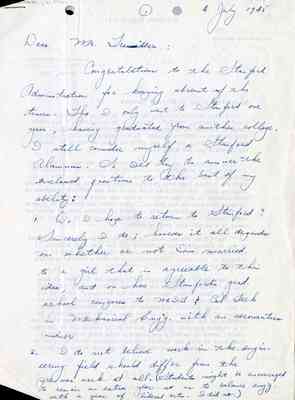 2 July 1945
Dear Mr.
Congratulations to the Stanford
Administration for keeping abreast of the
times. Tho I only went to Stanford one
year, having graduated from another college,
I still consider myself a Stanford
Alumnus. I'll try to answer the
enclosed questions to the best of my
ability:
1. Do I hope to return to Stanford?
Sincerely I do; however it all depends
on whether or not I'm married
to a girl that is agreeable to the
idea, and on how Stanford's grad
school compares to M.I.T. & Cal Tech
in Mechanical Eng'g. with an aeronautics
minor
2. I do not believe work in the engin-
eering field should differ from the
prewar work at all. (Students might be encouraged
to remain an extra year or so to balance eng'g
with a year of liberal arts. I did so.)